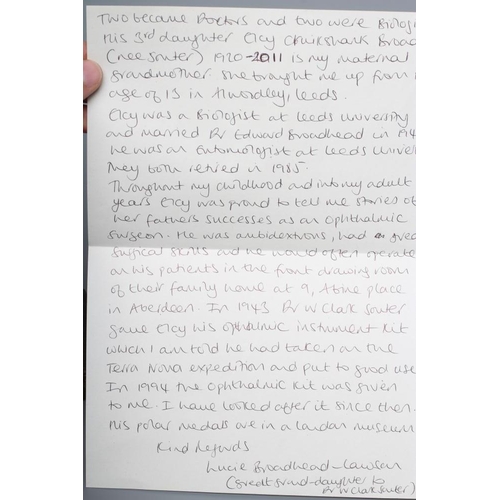 Two became Doctors and two were Biologi
His 3rd daughter Elcy Cruikshank Broad
(nee Souter) 1920-2011 is my maternal
grandmother. She brought me up from
age of 13 in Alwoodley, Leeds.
Elcy was a Biologist at Leeds University
and married Dr Edward Broadhead in 194
he was an Entomologist at Leeds Univer
They both retired in 1985.
Throughout my childhood and into my adult
years Elcy was proud to tell me stories of
her fathers successes as an Ophthalmic
surgeon. He was ambidextrous, had gre
surgical skills and he would often operate
on his patients in the front drawing room
of their family home at 9, Albyn place
in Aberdeen. In 1943 Dr W Clark Souter
gave Elcy his ophthalmic instrument kit
which I am told he had taken on the
Terra Nova expedition and put to good use
In 1994 the Ophthalmic kit was given
to me. I have looked after it since then.
His polar medals are in a London museum
Kind Regards
Lucie Broadhead-Lawson
(Great grand-daughter to
Dr W Clark Souter)